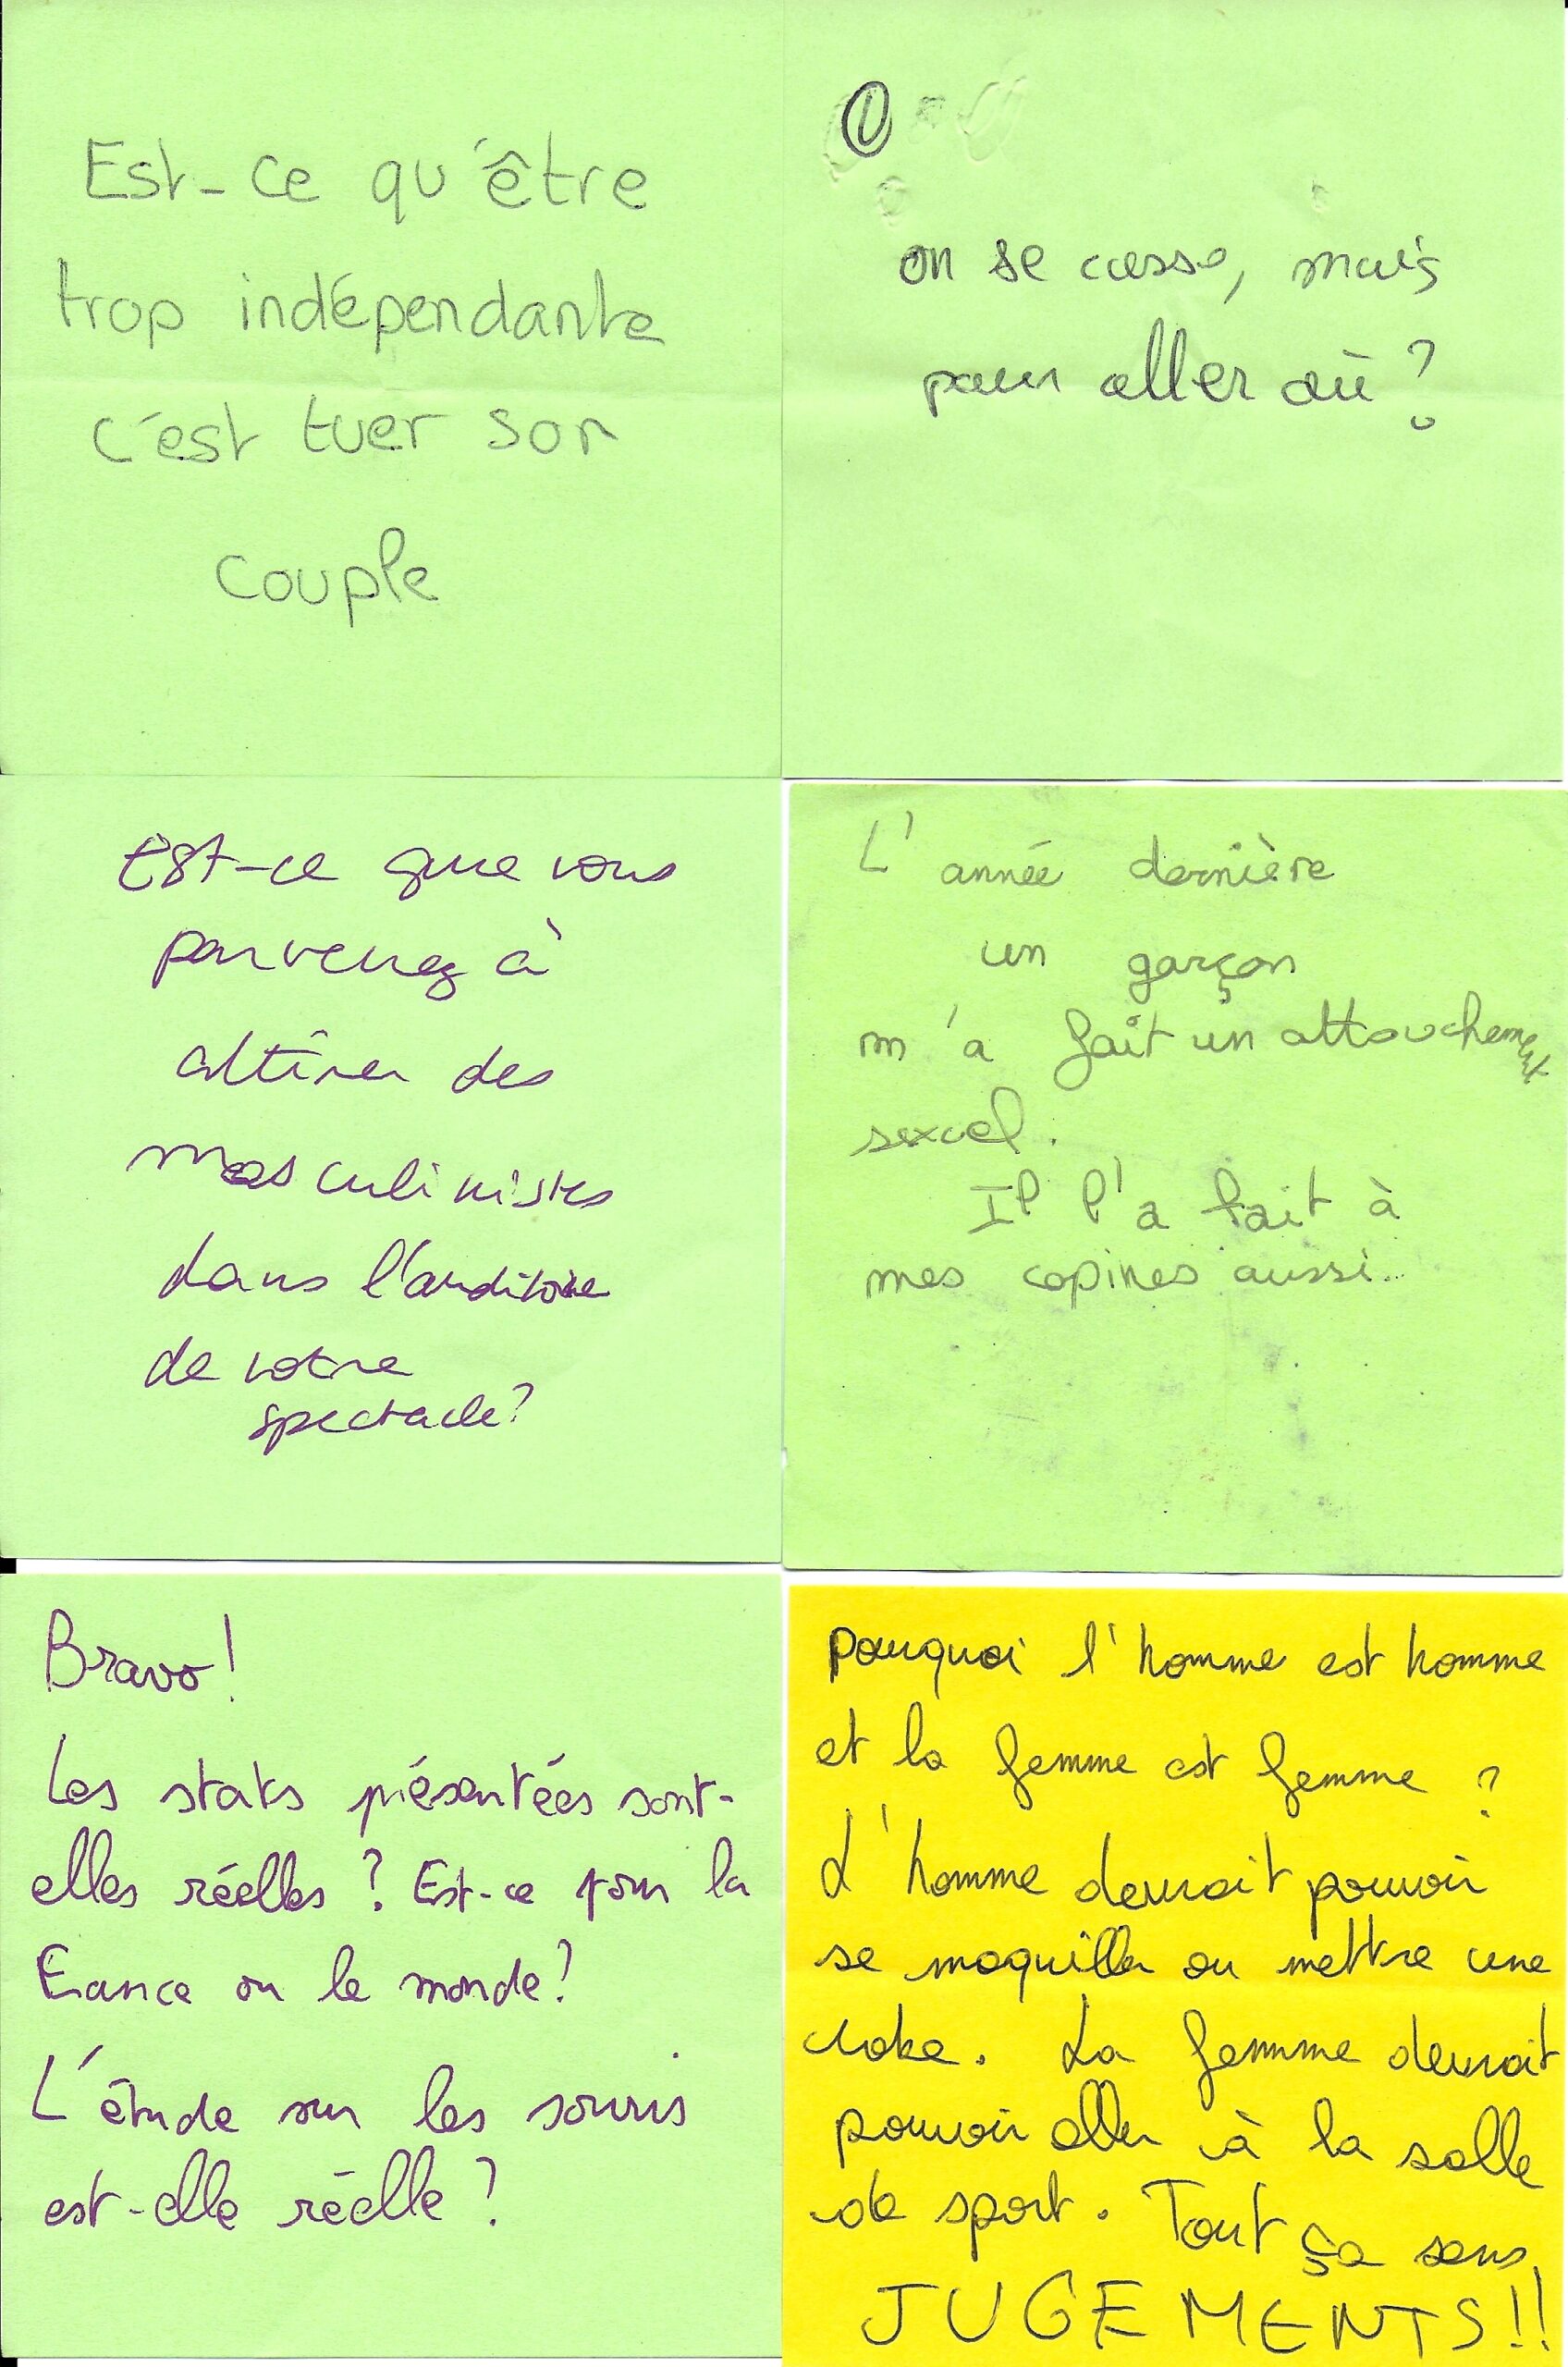 Est-ce qu'être
trop indépendante
c'est tuer son
couple
on se casse, mais
pour aller où ?
Est-ce que vous
parvenez à
attirer des
masculinistes
dans l'auditoire
de votre
spectacle ?
L'année dernière
un garçon
m'a fait un attouchement
sexuel.
Il l'a fait à
mes copines aussi..
Bravo !
Les stats présentées sont-
elles réelles ? Est-ce pour la
France ou le monde ?
L'étude sur les souris
est-elle réelle ?
Pourquoi l'homme est homme
et la femme est femme ?
L'homme devrait pouvoir
se maquiller ou mettre une
robe. La femme devrait
pouvoir aller à la salle
de sport. Tout ça sans
JUGEMENTS!!